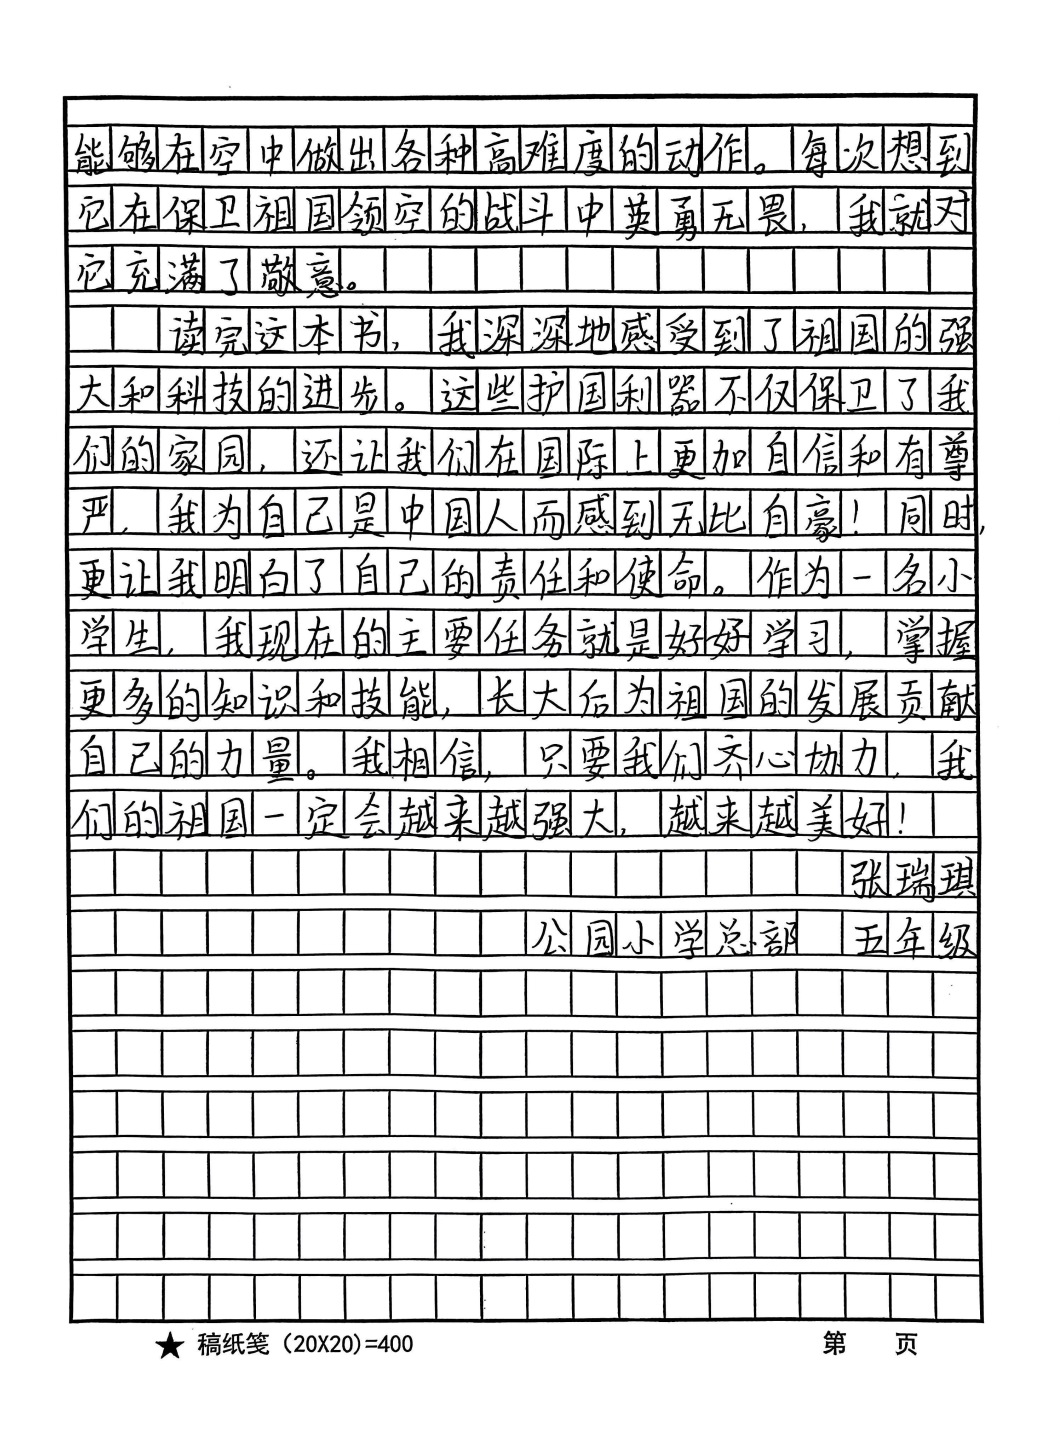 能够在空中做出各种高难度的动作。每次想到
它在保卫祖国领空的战斗中英勇无畏，我就对
它充满了敬意。
读完这本书，我深深地感受到了祖国的强
大和科技的进步。这些护国利器不仅保卫了我
们的家园，还让我们在国际上更加自信和有尊
严，我为自己是中国人而感到无比自豪！同时，
更让我明白了自己的责任和使命。作为一名小
学生，我现在的主要任务就是好好学习，掌握
更多的知识和技能，长大后为祖国的发展贡献
自己的力量。我相信，只要我们齐心协力，我
们的祖国一定会越来越强大，越来越美好！
张瑞琪
公园小学总部 五年级
★ 稿纸笺（20X20）=400 第 页